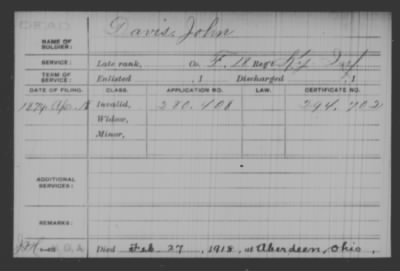 DEAD
NAME OF SOLDIER: Davis, John
SERVICE: Late rank, Co. F, 18 Reg't Ky Inf
TERM OF SERVICE: Enlisted , 1 Discharged , 1
DATE OF FILING. CLASS. APPLICATION NO. LAW. CERTIFICATE NO.
1879 Apr. Invalid, 280.408 294.702
Widow,
Minor,
ADDITIONAL SERVICES:
REMARKS:
Died Feb 27, 1918, at Aberdeen, Ohio.